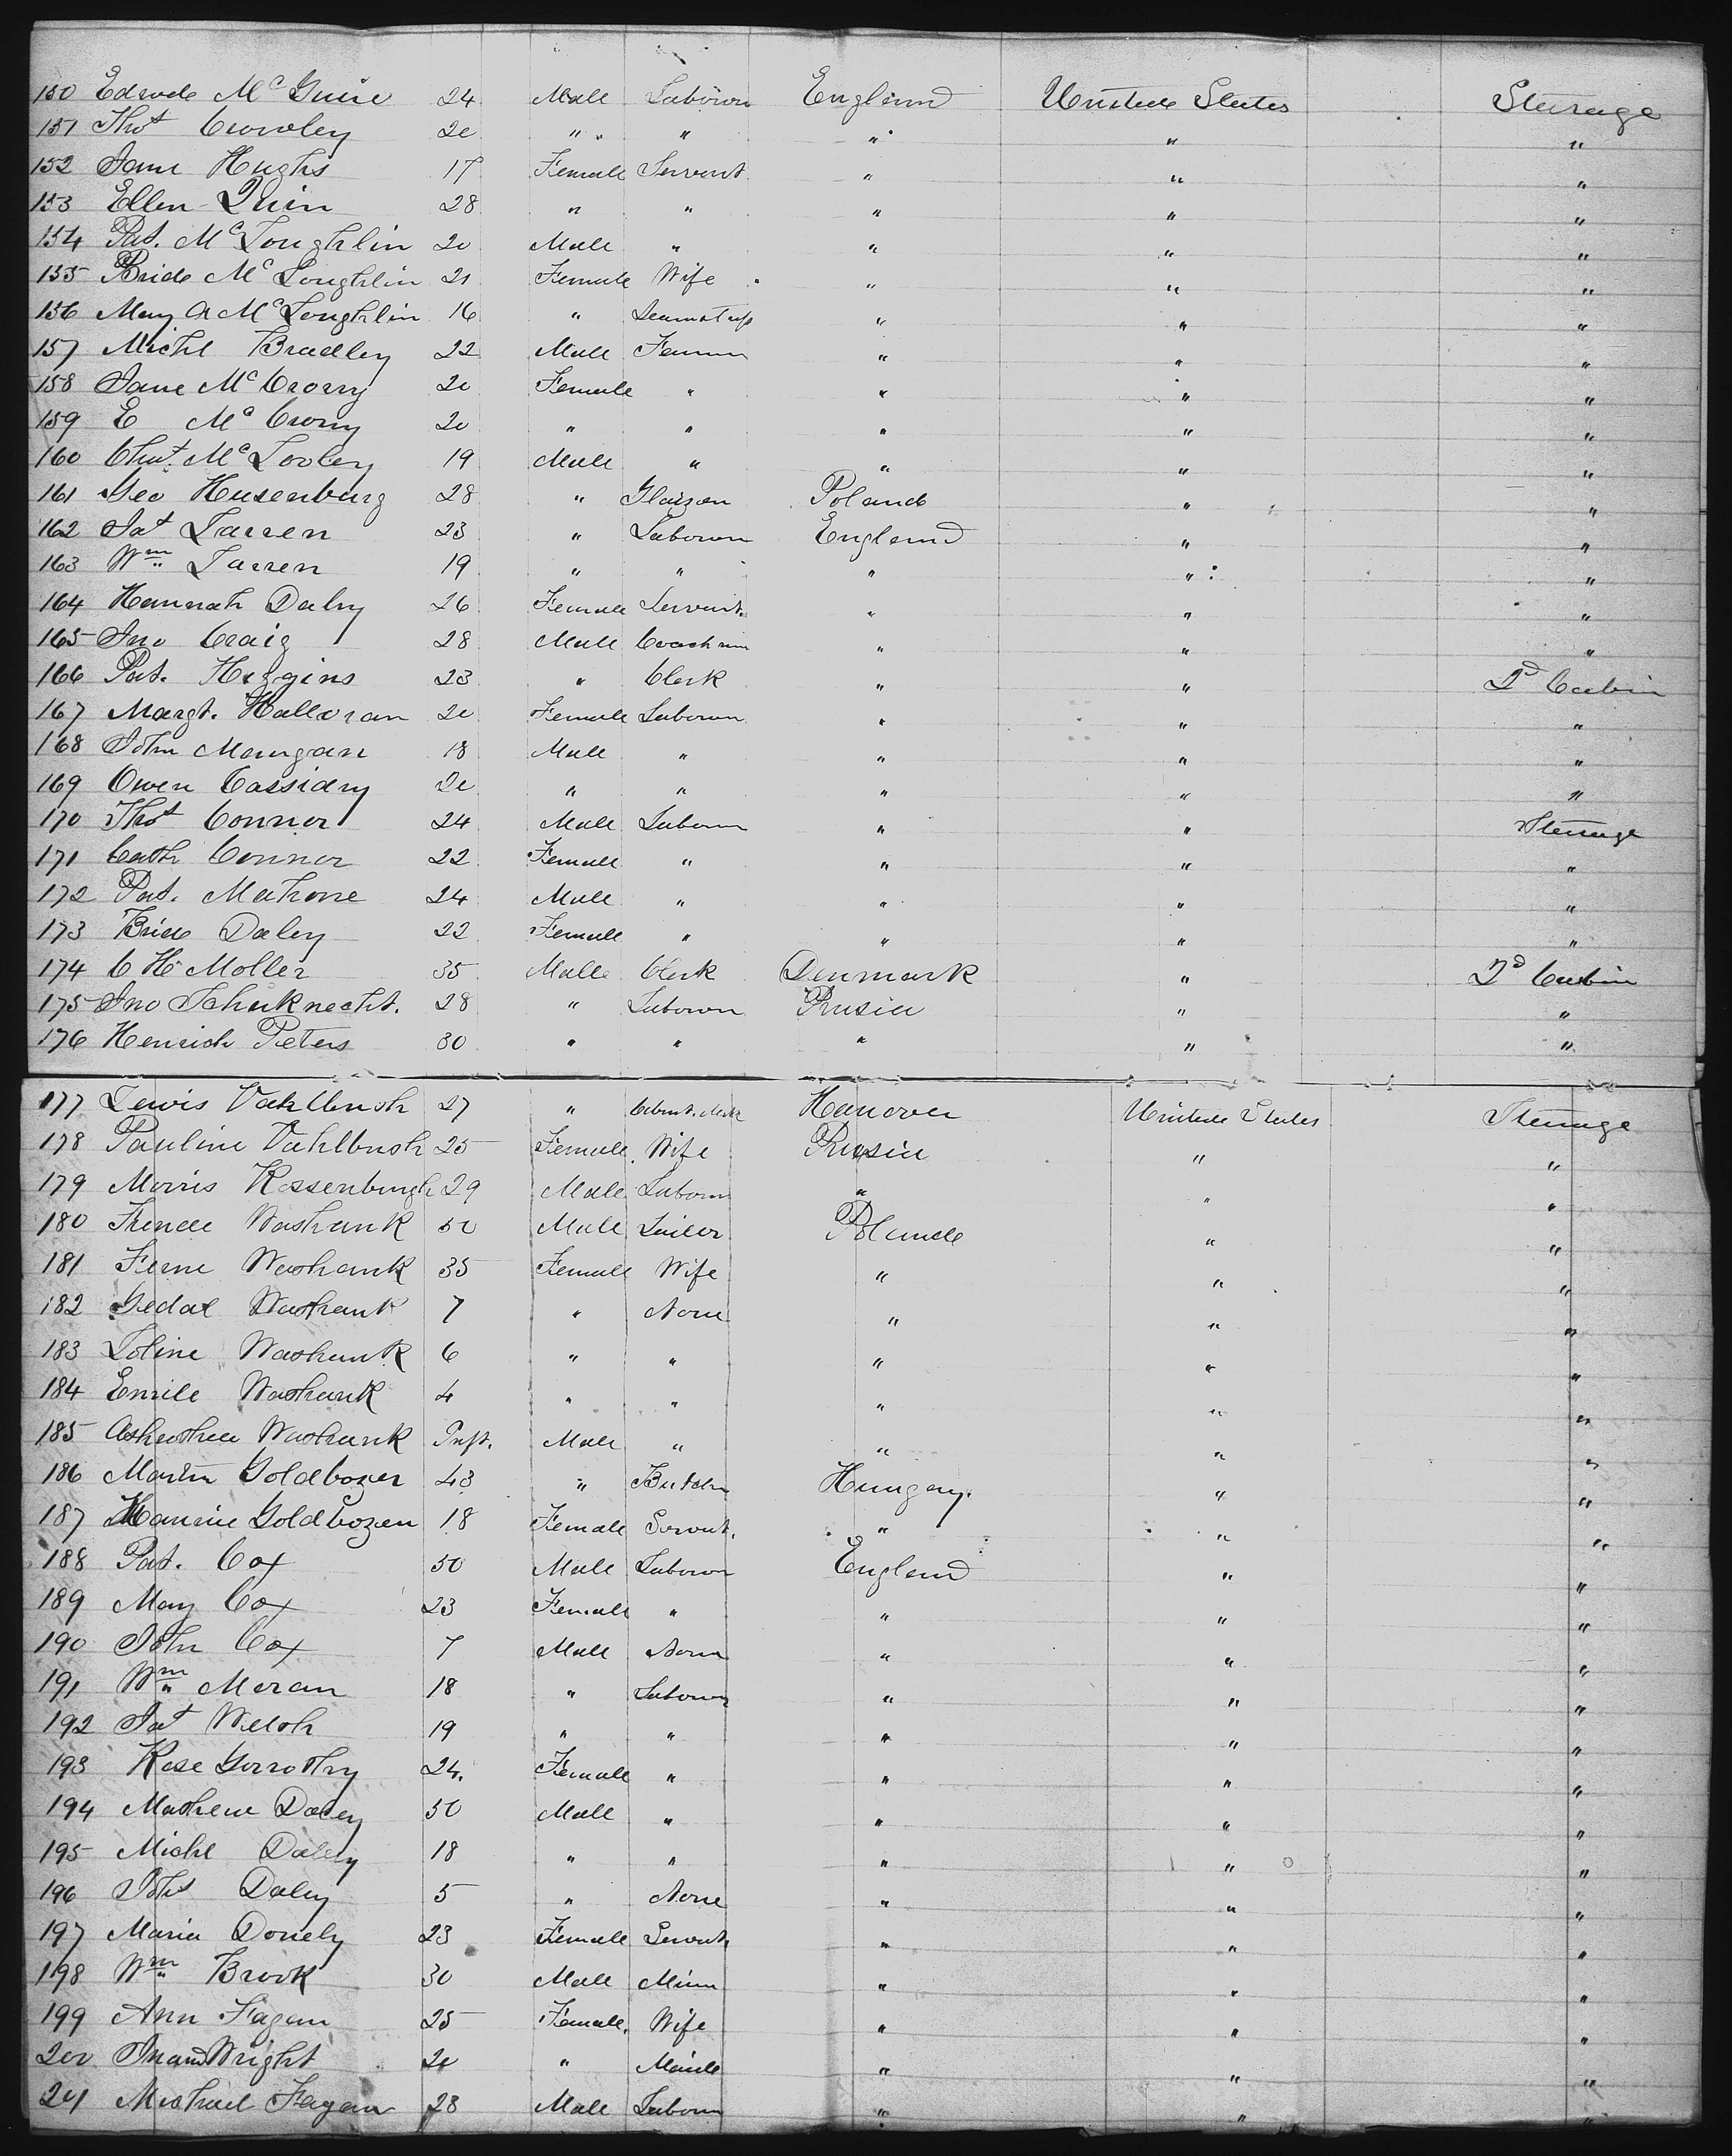 150 Edwode Mc Guire 24 Male Laborer England United States Steerage
151 Thos Crowley 20 " " " " "
152 Jane Hughs 17 Female Servant " " "
153 Ellen Quin 28 " " " " "
154 Pat. Mc Loughlin 20 Male " " " "
155 Bride Mc Loughlin 21 Female Wife " " "
156 Mary A Mc Loughlin 16 " " " "
157 Michl Bradley 22 Male Farmer " " "
158 Jane Mc Crorry 20 Female " " " "
159 E Mc Crorry 20 " " " " "
160 Chas. Mc Looley 19 Male " " " "
161 Geo Husenburg 28 " Glaizer Poland " "
162 Jas Larren 23 " Laborer England " "
163 Wm Larren 19 " " " " "
164 Hannah Daly 26 Female Servant " " "
165 Jno Craig 28 Male Coachman " " "
166 Pat. Higgins 23 " Clerk " " 2d Cabin
167 Margt. Halloran 20 Female Laborer " " "
168 John Mangan 18 Male " " " "
169 Owen Cassidy 20 " " " " "
170 Thos Connor 24 Male Laborer " " Steerage
171 Cath Connor 22 Female " " " "
172 Pat. Mahone 24 Male " " " "
173 Bride Daley 22 Female " " " "
174 C H Moller 35 Male Clerk Denmark " 2d Cabin
175 Jno Schuknecht. 28 " Laborer Prusia " "
176 Henrich Peters 30 " " " " "
177 Lewis Vahlbush 27 " Cabint. Makr Hanover United States Steerage
178 Pauline Vahlbush 25 Female Wife Prusia " "
179 Morris Rossenburgh 29 Male Laborer " " "
180 Washank 50 Male Tailor Poland " "
181 Ferne Washank 35 Female Wife " " "
182 Gedal Washank 7 " None " " "
183 Loline Washank 6 " " " " "
184 Emile Washank 4 " " " " "
185 Washank Inft. Male " " " "
186 Martin Goldbozer 43 " Butcher Hungary. " "
187 Hannie Goldbozer 18 Female Servnt. " " "
188 Pat. Cox 50 Male Laborer England " "
189 Mary Cox 23 Female " " " "
190 John Cox 7 Male None " " "
191 Wm Moran 18 " Laborer " " "
192 Jas Welsh 19 " " " " "
193 Rose Gorrothy 24. Female " " " "
194 Mathew Daley 50 Male " " " "
195 Michl Daley 18 " " " " "
196 Daley 5 " None " " "
197 Maria Donely 23 Female Servnt. " " "
198 Wm Brook 30 Male Miner " " "
199 Ann Fagan 25 Female. Wife " " "
200 Wright 20 " Maide " " "
201 Michael Fagan 28 Male Laborer " " "